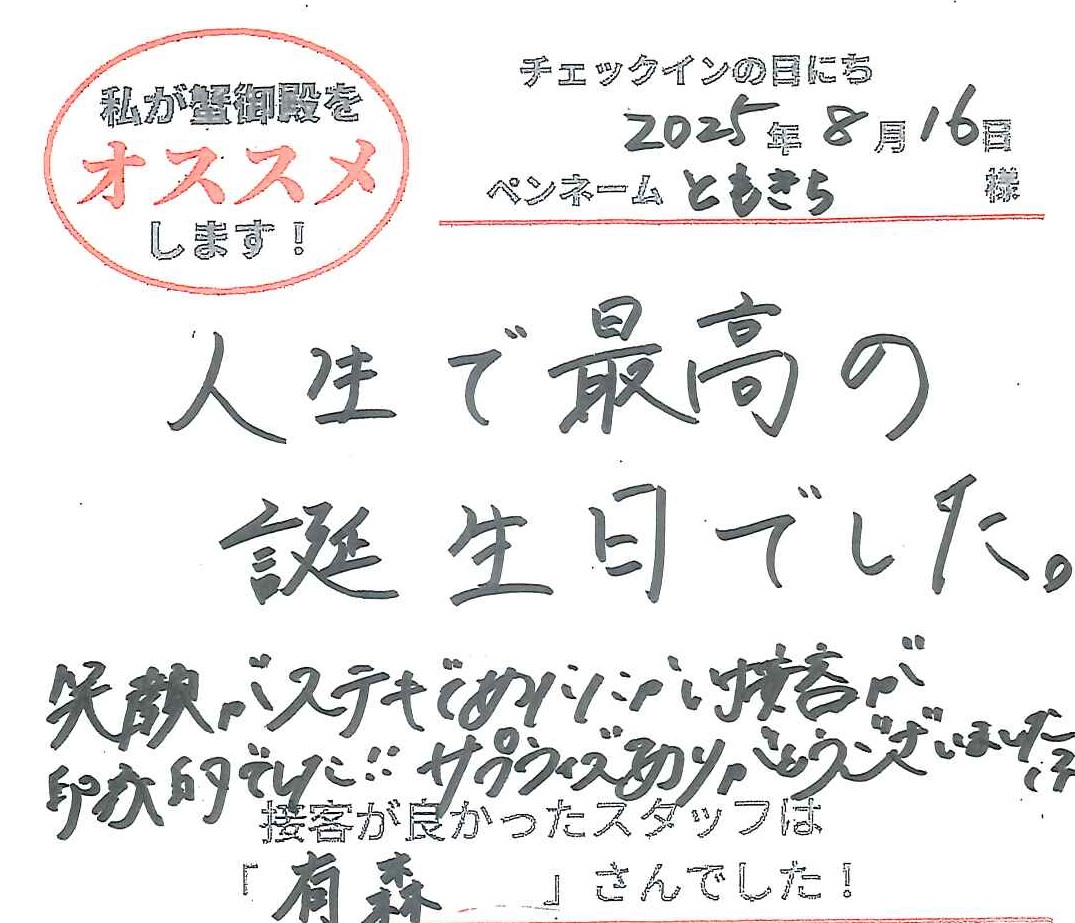 私が蟹御殿を
オススメ
します！
チェックインの日にち
2025年 8月 16日
ペンネーム ともきち 様
人生で最高の
誕生日でした。
笑顔がステキであたたかい接客が
印象的でした!! サプライズありがとうございました
接客が良かったスタッフは
「有森」さんでした！